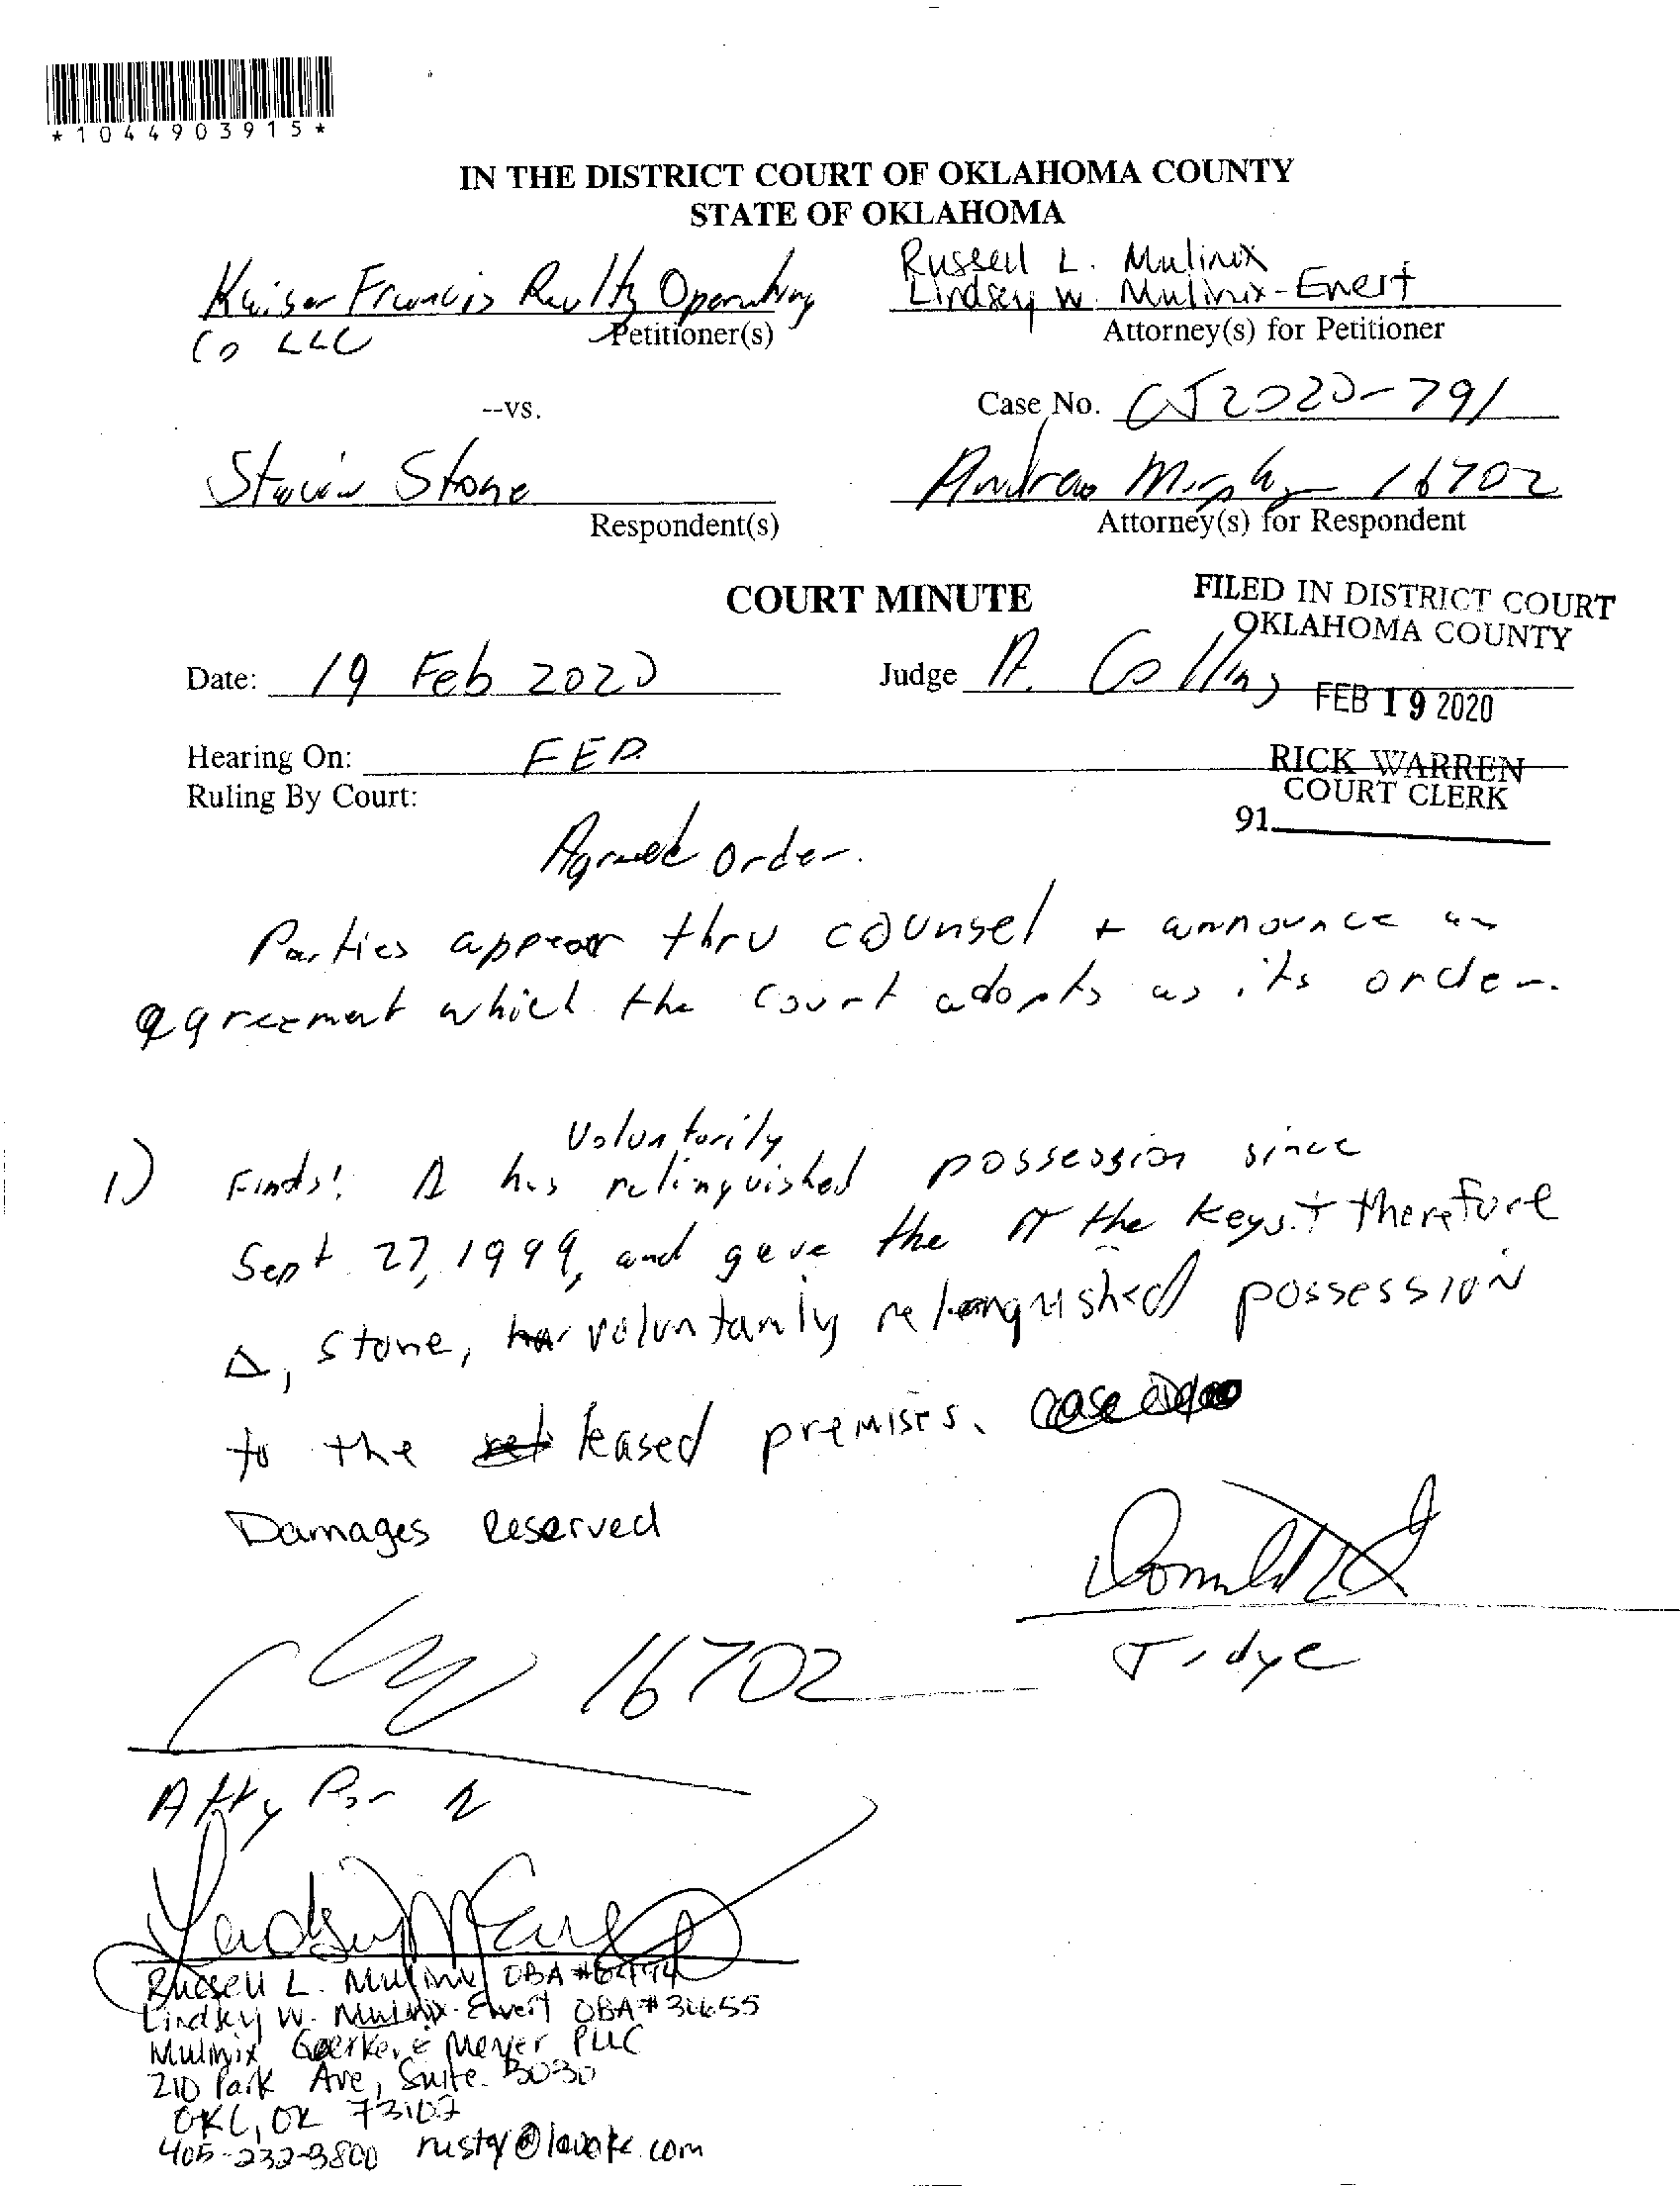 *1044903915*
IN THE DISTRICT COURT OF OKLAHOMA COUNTY
STATE OF OKLAHOMA
Kaiser Francis Realty Operating
Co LLC
Petitioner(s)
Russell L. Mulinix
Lindsey W. Mulinix-Ewert
Attorney(s) for Petitioner
--vs.
Case No. CJ2020-791
Stone
Respondent(s)
Andrew Murphy 16702
Attorney(s) for Respondent
COURT MINUTE
FILED IN DISTRICT COURT
OKLAHOMA COUNTY
Date: 19 Feb 2020
Judge A. Collins
FEB 19 2020
Hearing On: FED
RICK WARREN
COURT CLERK
Ruling By Court:
91
Agreed order.
Parties appear thru counsel + announce an
agreement which the court adopts as its order.
voluntarily
1) Finds: Δ has relinquished possession since
Sept 27, 1999, and gave the π the keys. + therefore
Δ, Stone, voluntarily relinquished possession
to the leased premises.
Damages reserved
16702
Judge
Atty for Δ
Russell L. Mulinix OBA #
Lindsey W. Mulinix-Ewert OBA #
Mulinix Goerke & Meyer PLLC
210 Park Ave, Suite 3030
OKC, OK 73102
405-232-3800 rusty@lawokc.com